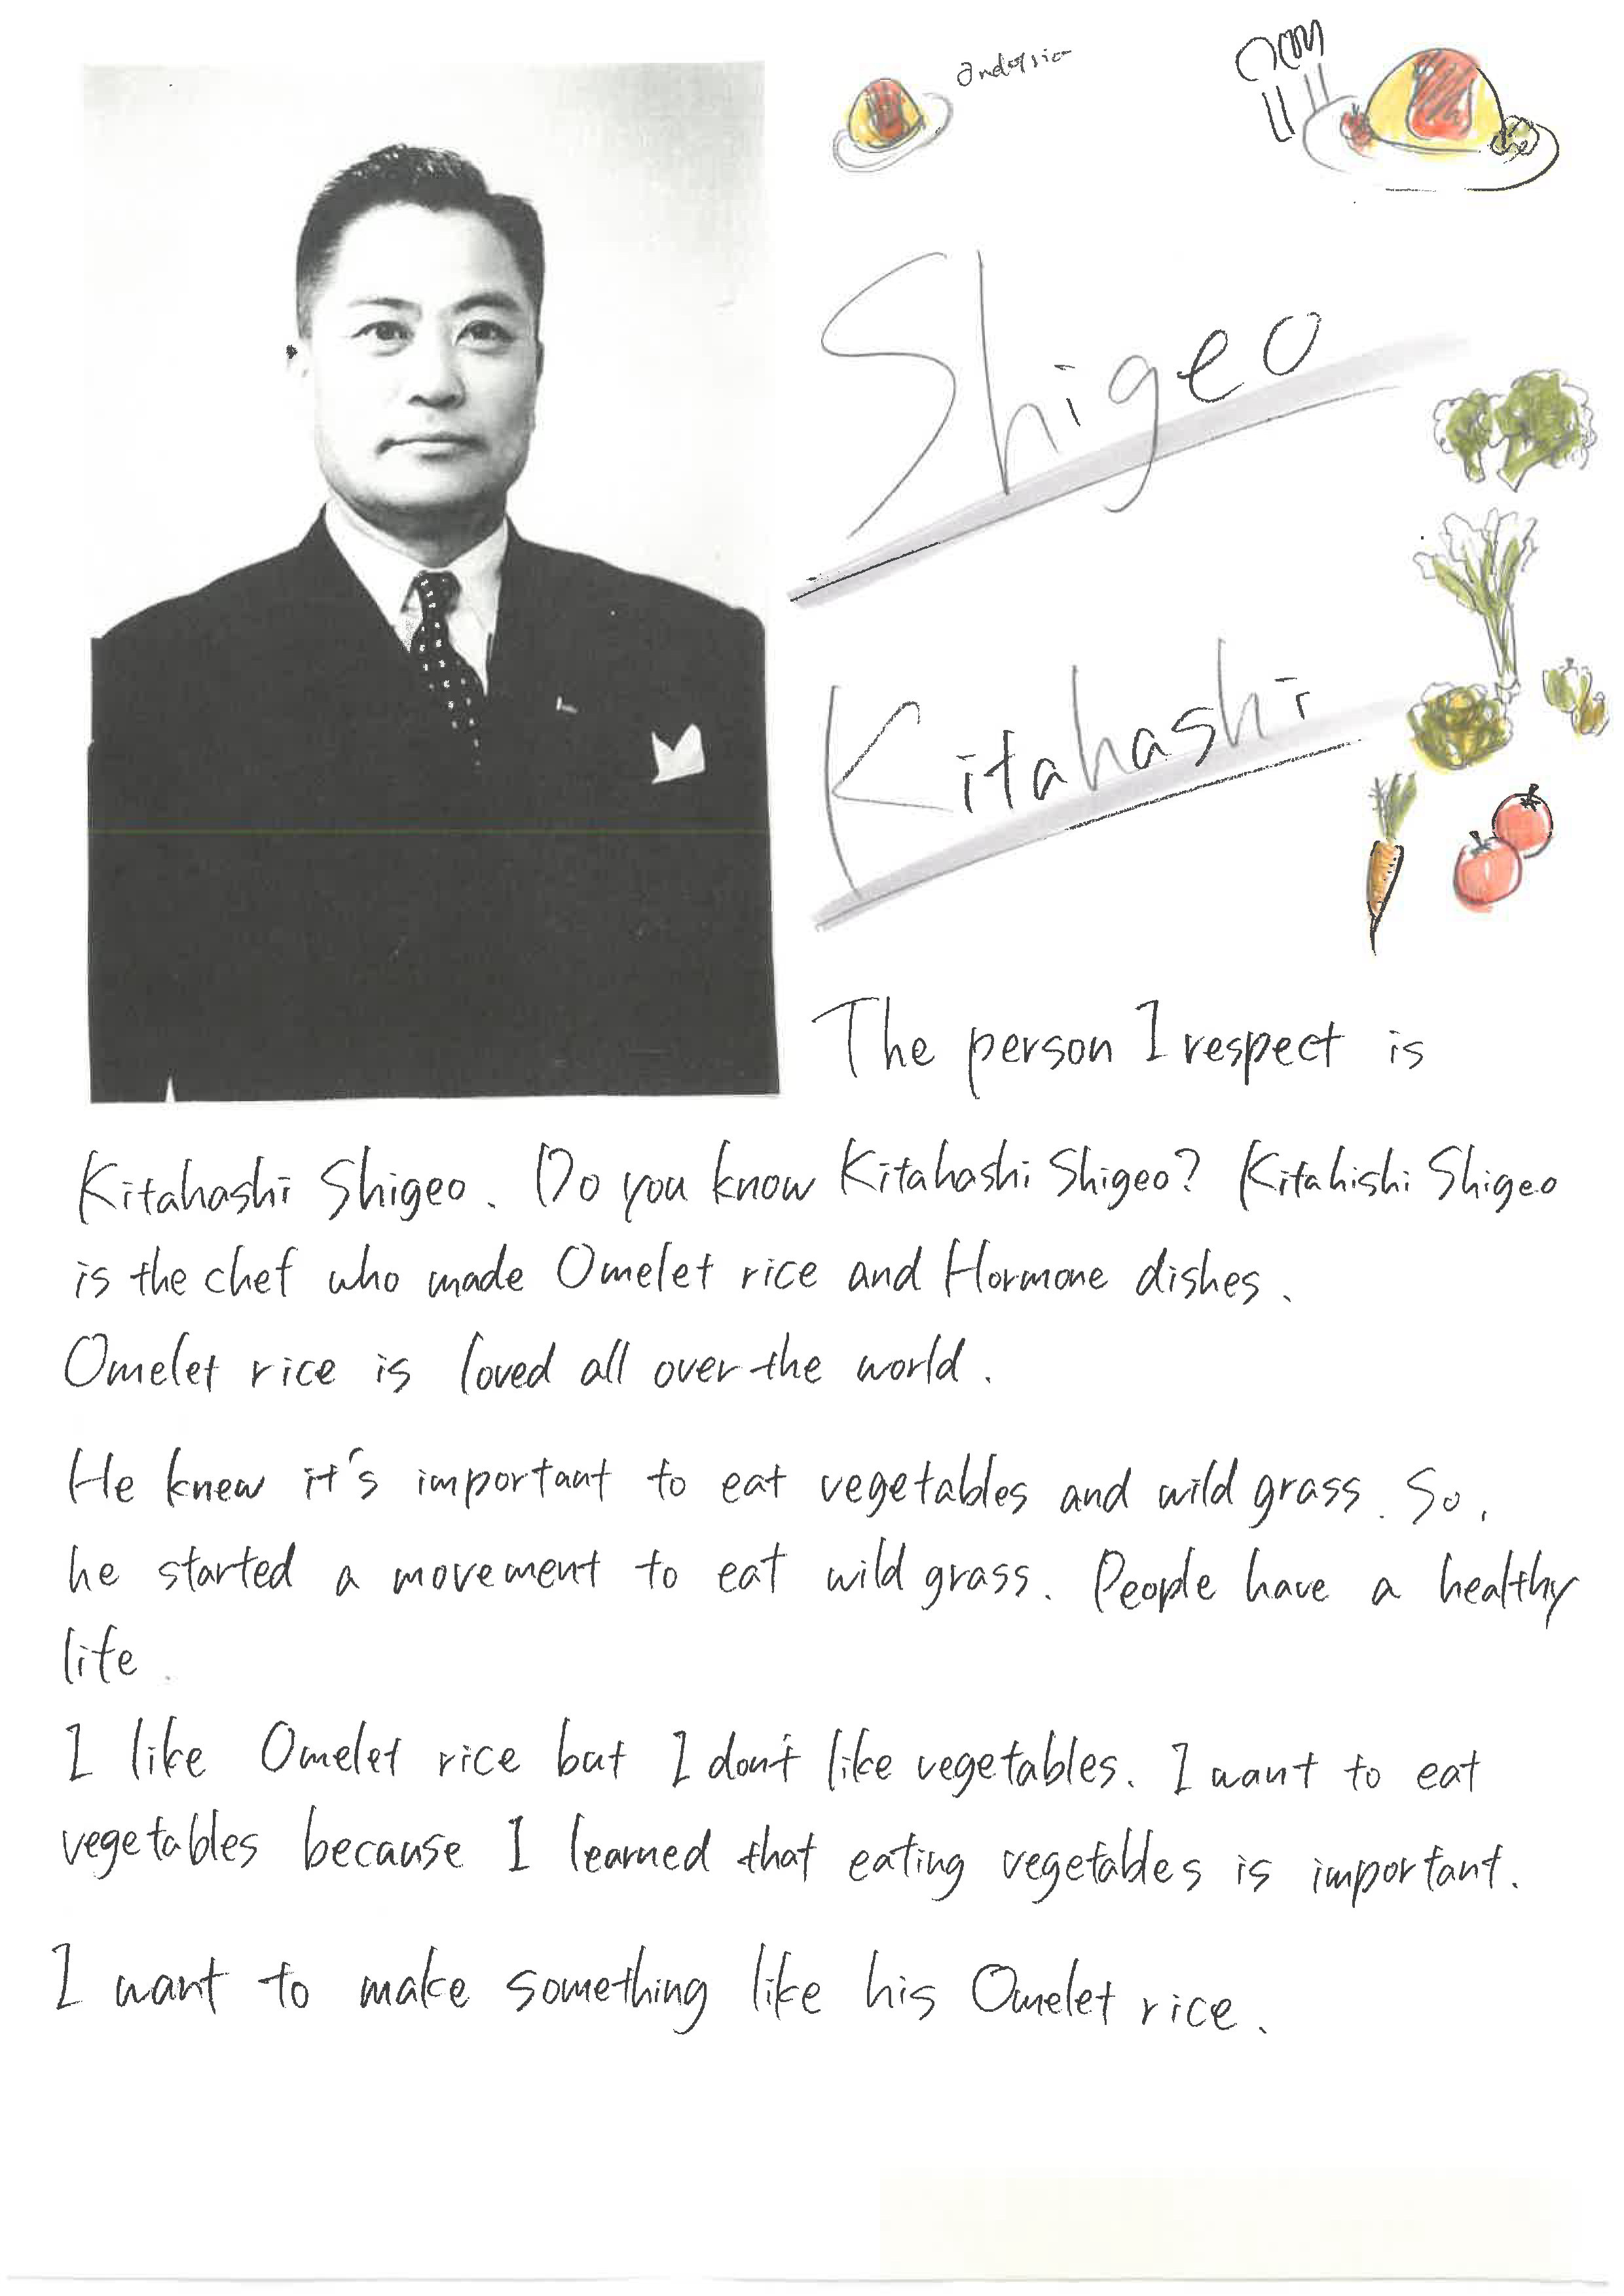 Shigeo
Kitahashi
The person I respect is
Kitahashi Shigeo. Do you know Kitahashi Shigeo? Kitahishi Shigeo
is the chef who made Omelet rice and Hormone dishes.
Omelet rice is loved all over the world.
He knew it's important to eat vegetables and wild grass. So,
he started a movement to eat wild grass. People have a healthy
life.
I like Omelet rice but I don't like vegetables. I want to eat
vegetables because I learned that eating vegetables is important.
I want to make something like his Omelet rice.